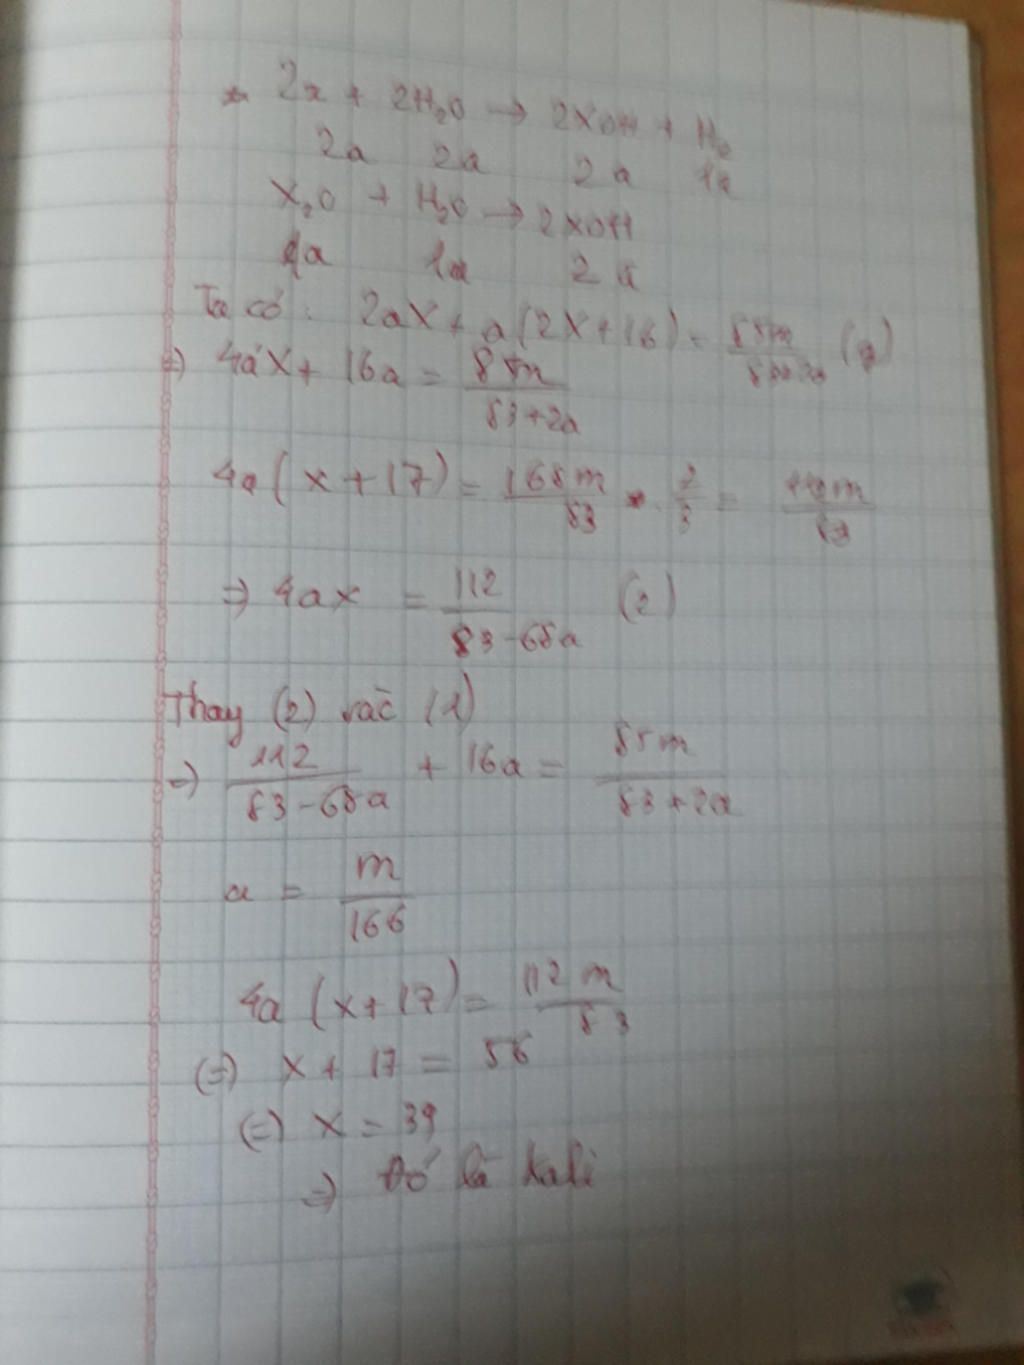 * 2x + 2H₂O → 2XOH + H₂
2a 2a 2a 1a
X₂O + H₂O → 2XOH
1a 1a 2a
Ta có : 2aX + a(2X+16) =
=) 4aX + 16a = 85m / 83+2a
4a(x+17) = 168m / 83 . 2/3 = 112m / 83
=) 4ax = 112 / 83-68a (2)
Thay (2) vào (1)
=) 112 / 83-68a + 16a = 85m / 83+2a
a = m / 166
4a (x+17) = 112m / 83
(=) x + 17 = 56
(=) x = 39
=) Đó là kali